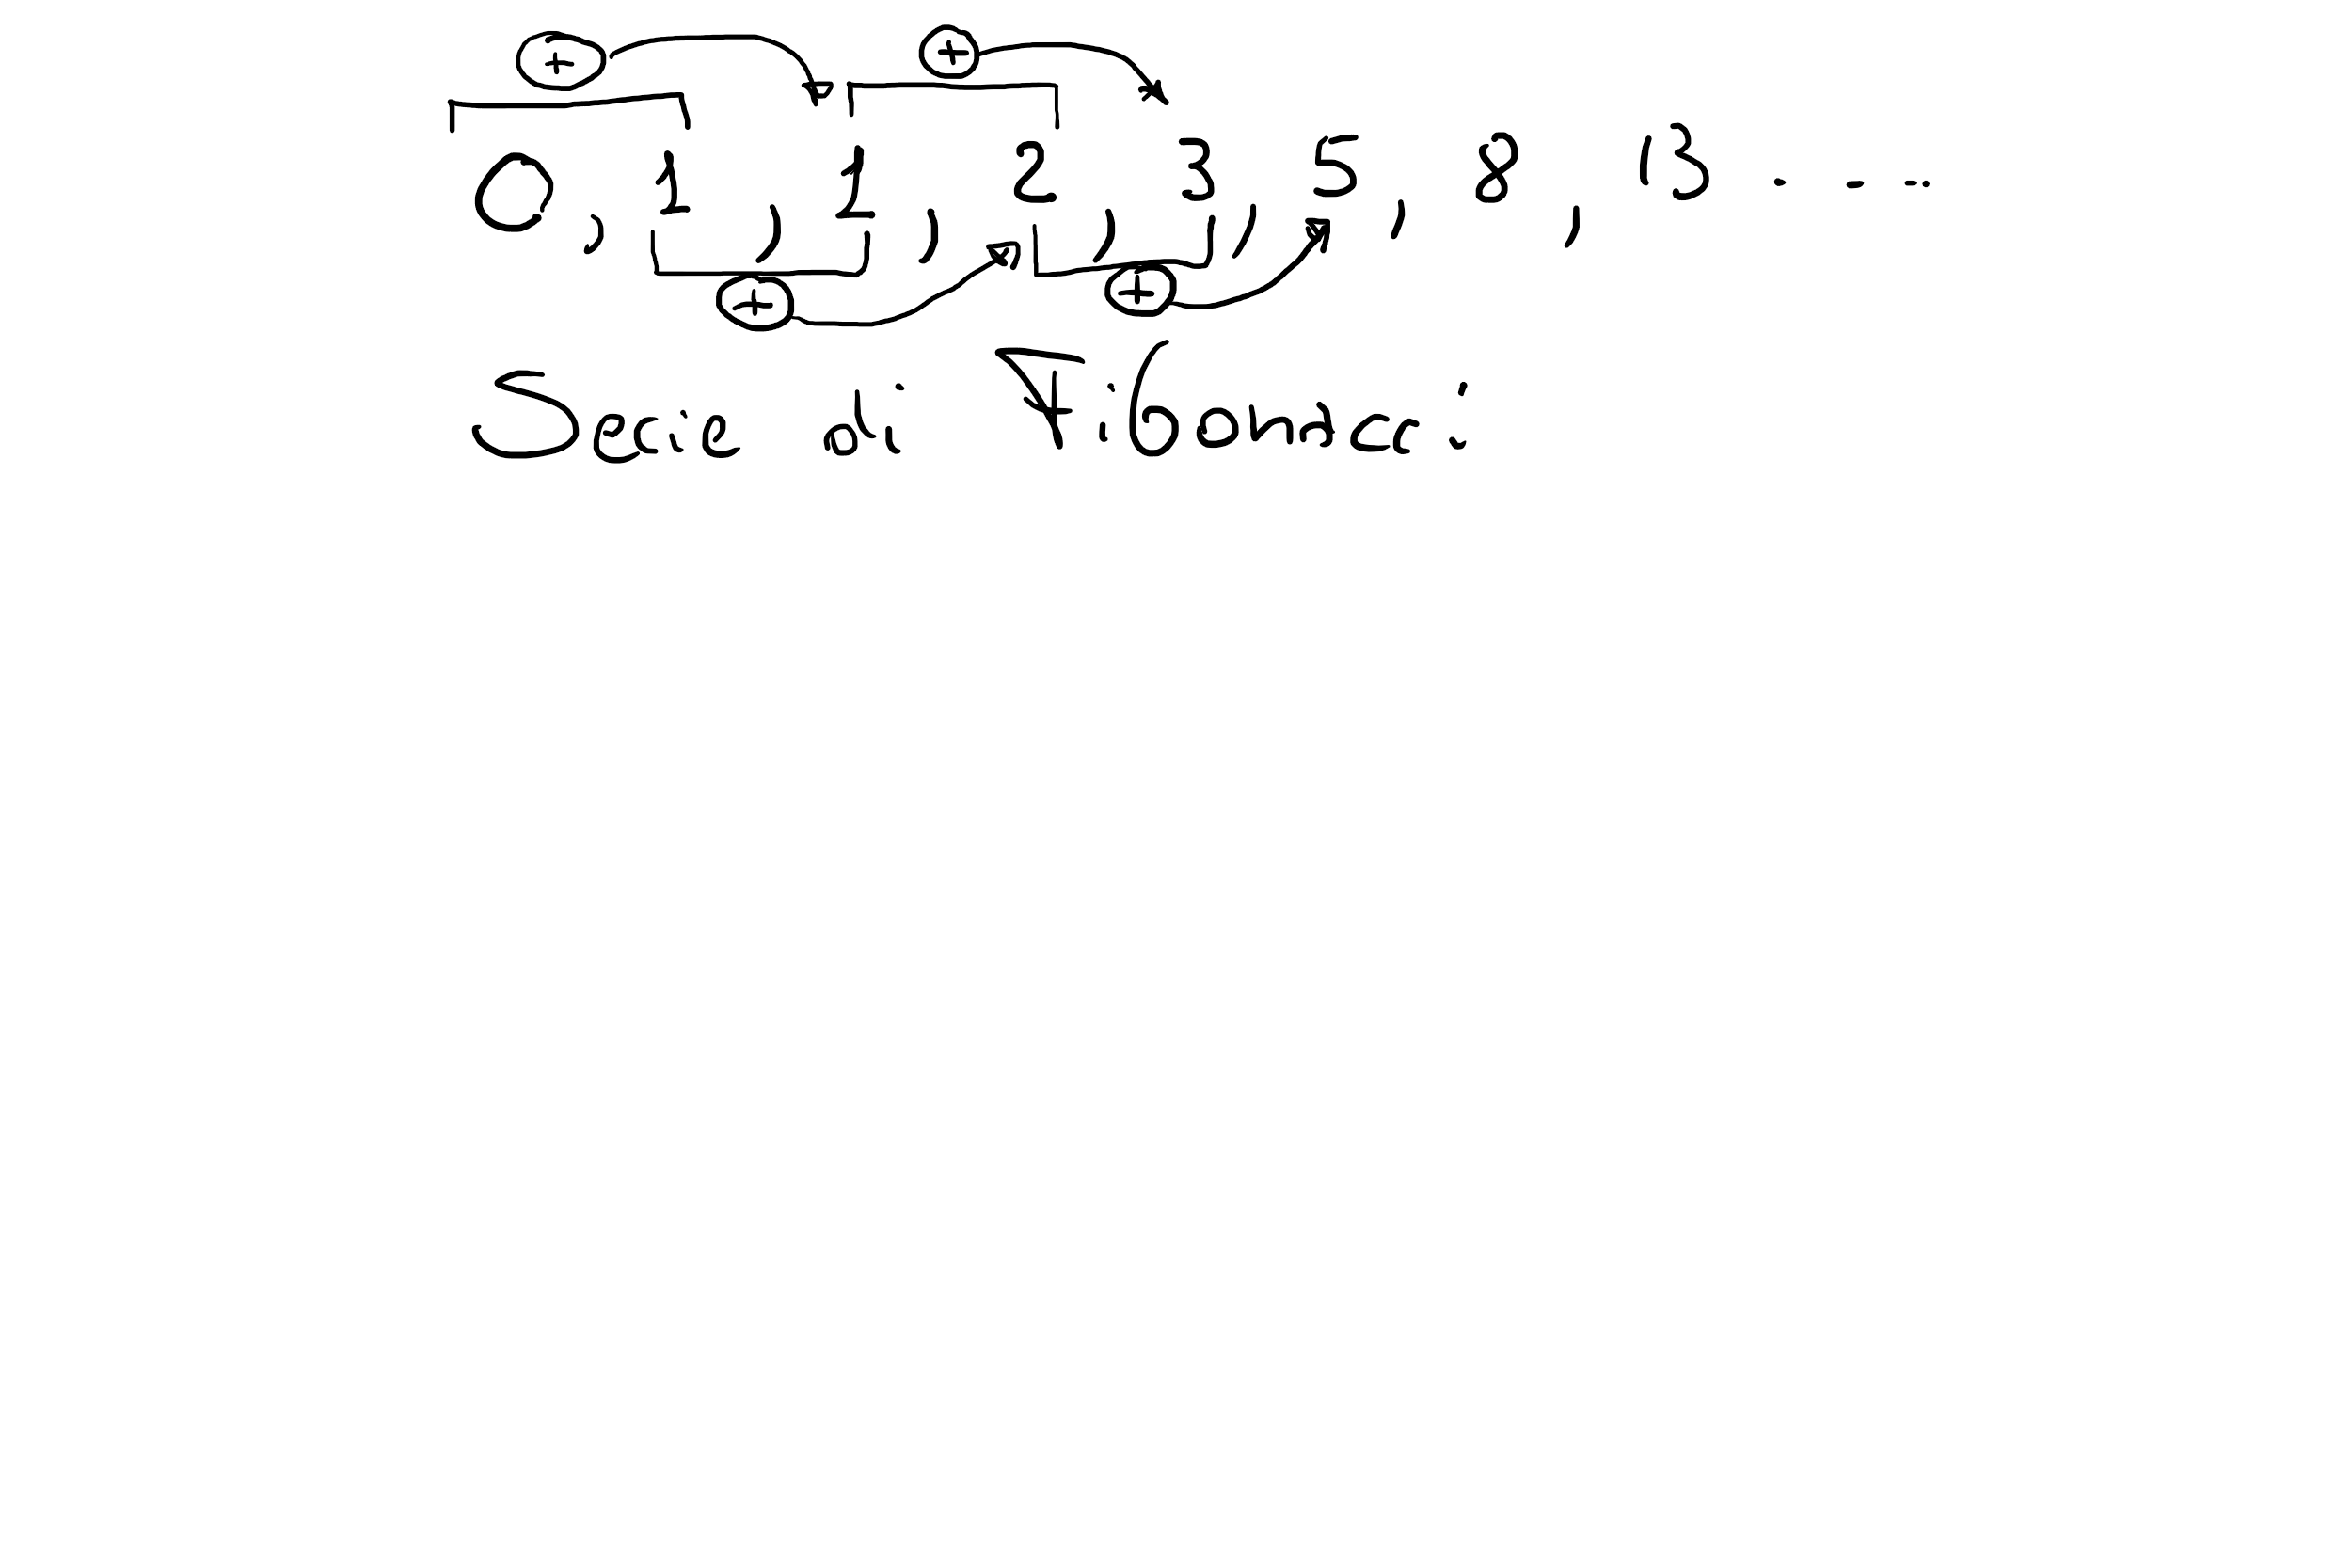 + +
0, 1, 1, 2, 3, 5, 8, 13 ....
+ +
Serie di Fibonacci